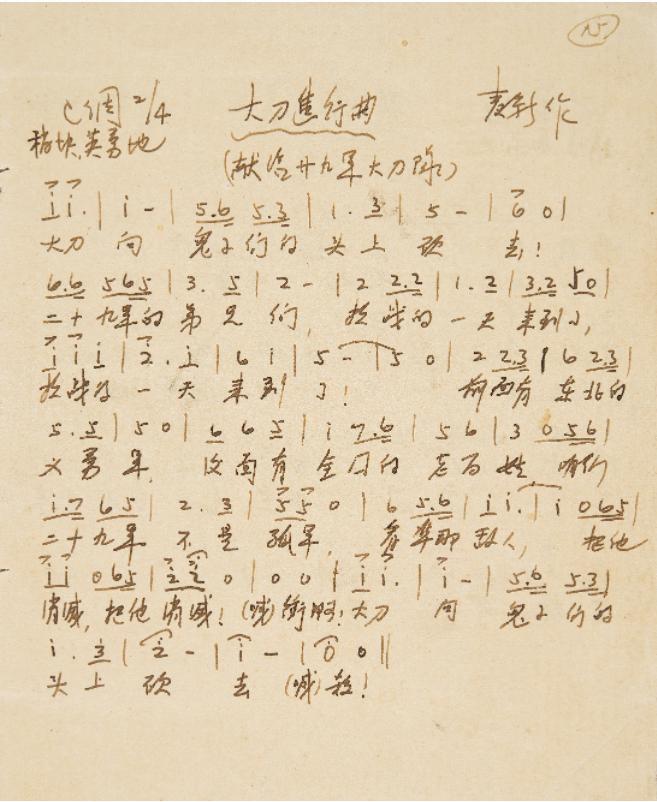 15
C调 2/4 大刀进行曲 麦新作
稍快、英勇地
(献给廿九军大刀队)
i i. | i - | 5.6 5.3 | 1. 3 | 5 - | 6 0 |
大刀 向 鬼子们的 头上 砍 去!
6.6 565 | 3. 5 | 2 - | 2 2.2 | 1. 2 | 3.2 50 |
二十九军的 弟兄们, 抗战的一天来到了,
i i i | 2. i | 6 i | 5 - | 5 0 | 2 2.3 | 6 2.3 |
抗战的一天来到了! 前面有 东北的
5. 5 | 5 0 | 6 6 5 | i 7.6 | 5 6 | 3 0 56 |
义勇军, 后面有 全国的 老百姓, 咱们
i.7 65 | 2. 3 | 5 5 0 | 6 5.6 | i i. | i 0 65 |
二十九军 不是 孤军, 看準那敌人, 把他
i i 0 65 | 2 2 0 | 0 0 | i i. | i - | 5.6 5.3 |
消滅, 把他消滅! (喊)衝啊! 大刀 向 鬼子们的
i. 3 | 2 - | i - | i 0 ||
头上 砍 去 (喊)殺!